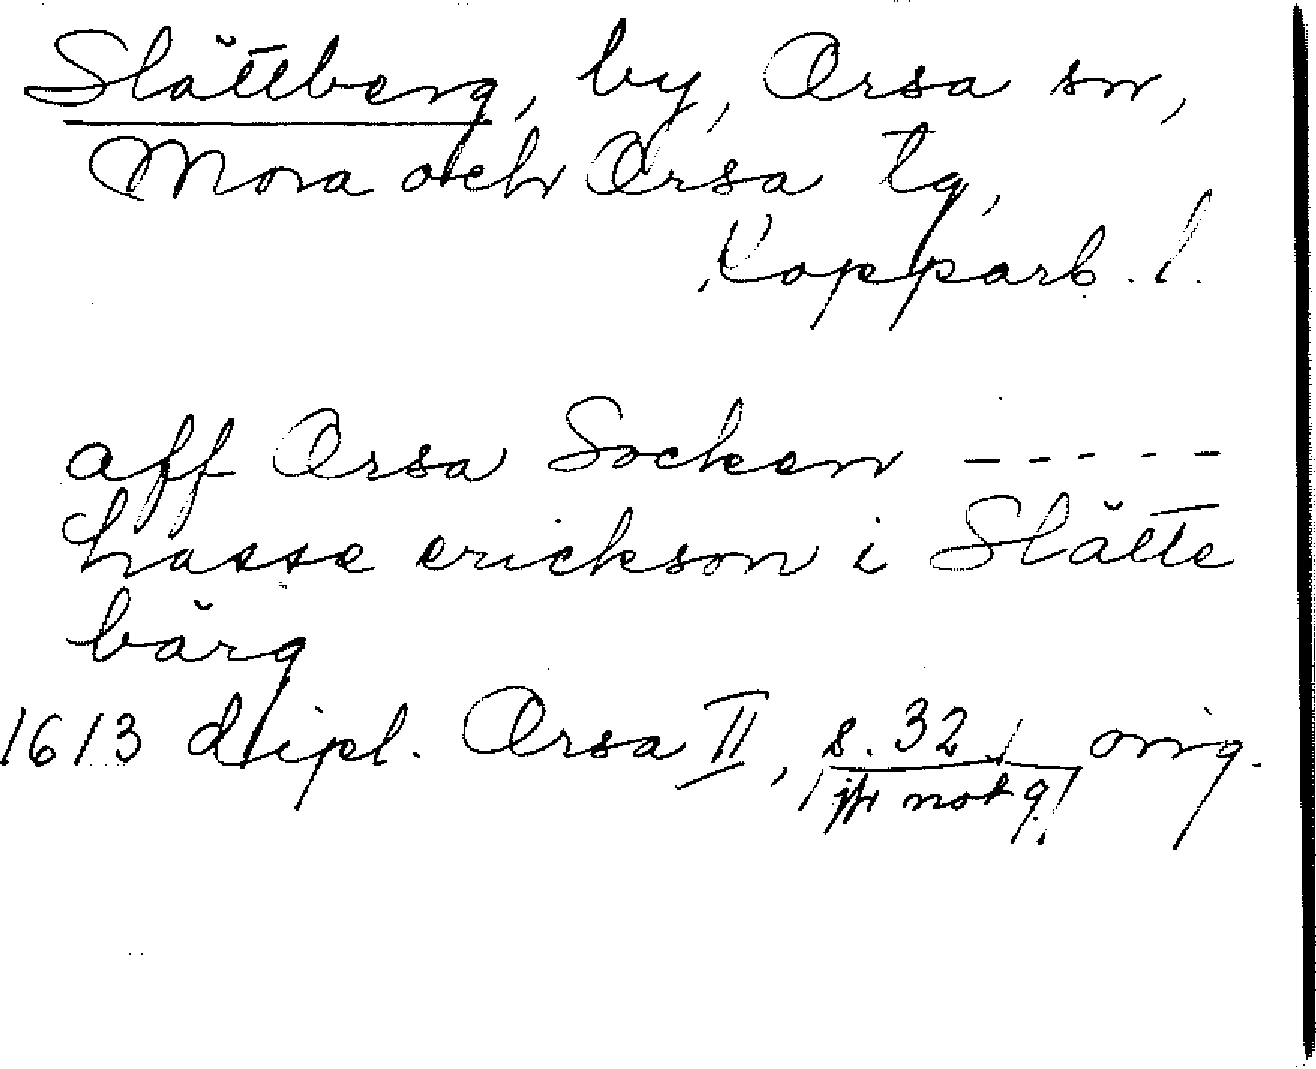 Slättberg, by, Orsa sn,
Mora och Orsa tg,
Kopparb. l.
aff Orsa Socken -----
hasse erickson i Slätte
bärg
1613 dipl. Orsa II, s. 32 orig.
(jfr not 9)